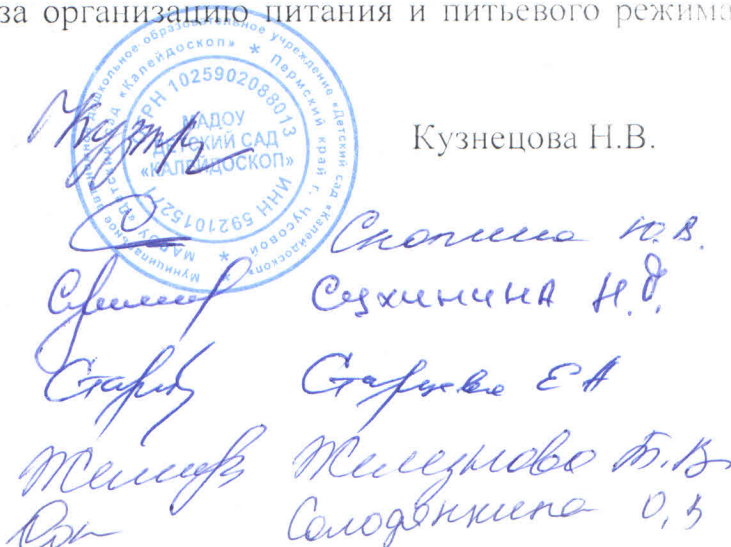 за организацию питания и питьевого режима
Муниципальное дошкольное образовательное учреждение «Детский сад «Калейдоскоп» Пермский край г. Чусовой
МАДОУ «Детский сад «Калейдоскоп»
ОГРН 1025902088013
ИНН 592101527
МАДОУ
ДЕТСКИЙ САД
«КАЛЕЙДОСКОП»
Кузнецова Н.В.
Скопина Ю.В.
Сухинина Н.
Старцева Е А
Железнова Т.В
Солодянкина О,В